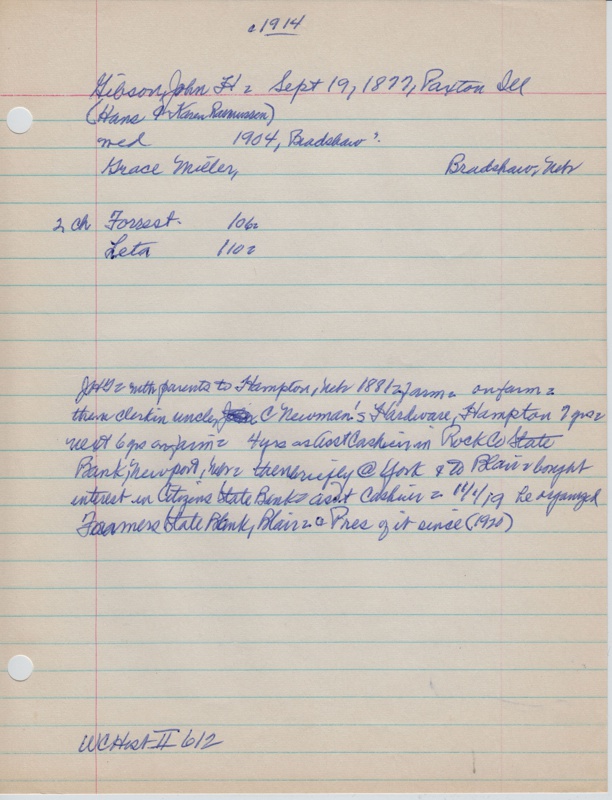 c 1914
Gibson, John H = Sept 19, 1877, Paxton Ill
(Hans & Karen Rasmussen)
med 1904, Bradshaw?
Grace Miller, Bradshaw, Nebr
2 ch Forrest. 10
Leta 110
JHG = with parents to Hampton, Nebr 1881 = farm = on farm =
then clerk in uncle C Newman's Hardware, Hampton 7 yrs =
next 6 yrs on farm = 4 yrs as Asst Cashier in Rock Co State
Bank, Newport, Nebr = then briefly @ York & to Blair = bought
interest in Citizens State Bank = asst Cashier = 11/1/19 he organized
Farmers State Bank, Blair = c Pres of it since (1920)
WCHist II 612